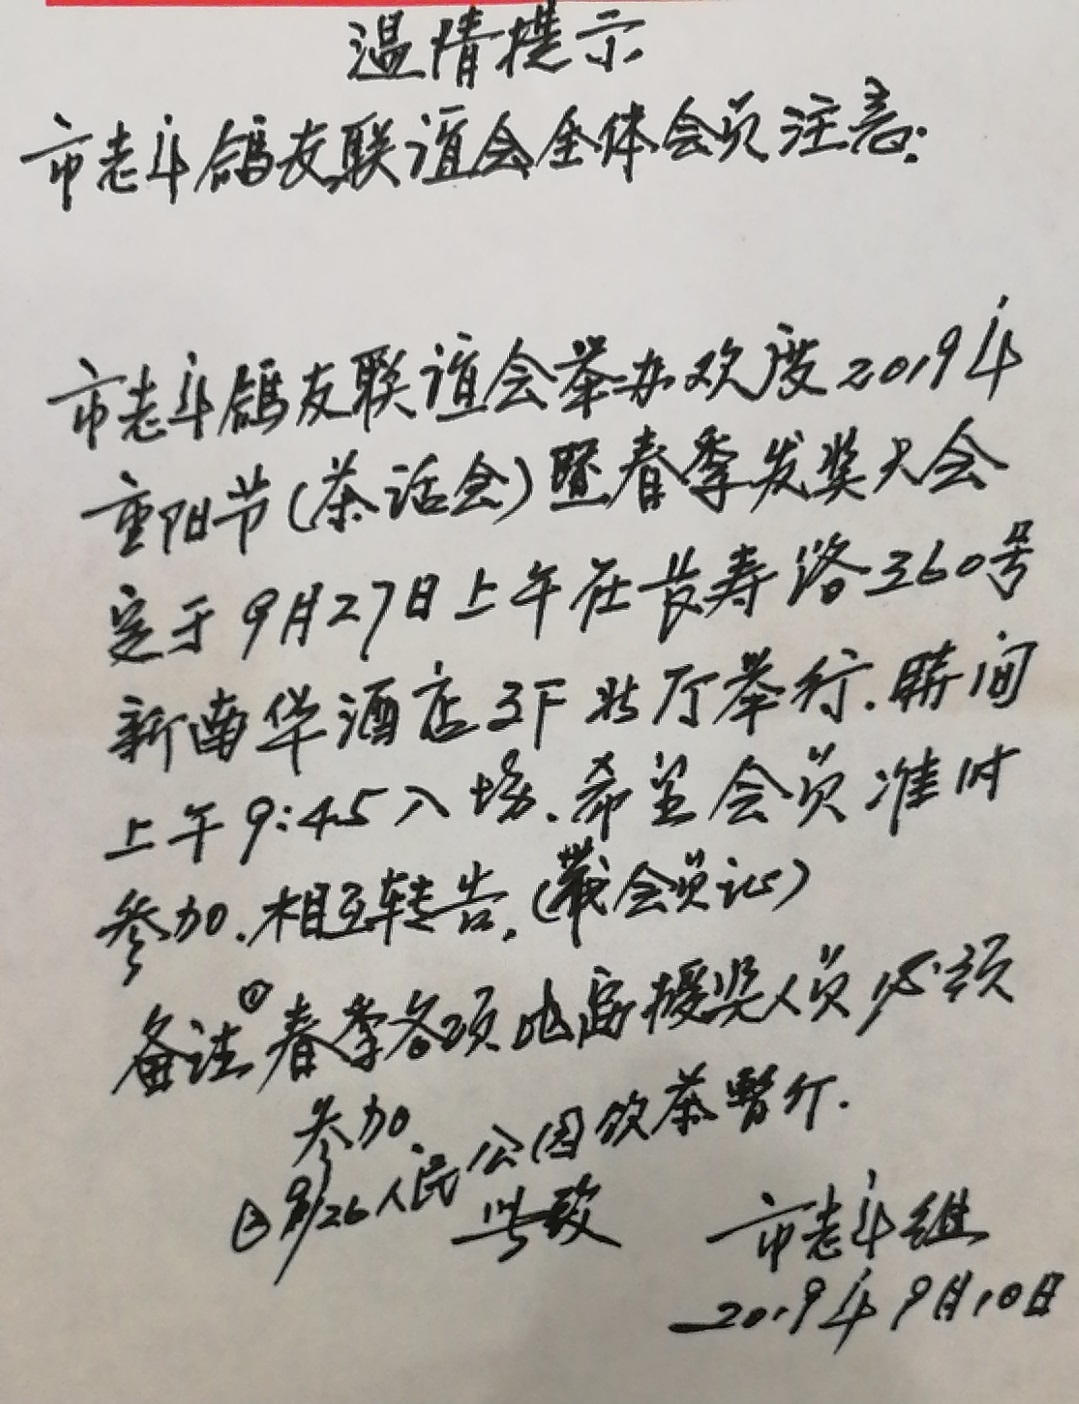 温情提示
市老年鸽友联谊会全体会员注意:
市老年鸽友联谊会举办欢度2019年
重阳节(茶话会)暨春季发奖大会
定于9月27日上午在长寿路360号
新南华酒店3F北厅举行.时间
上午9:45入场.希望会员准时
参加.相互转告.(带会员证)
备注①春季各项比赛授奖人员必须
参加.
②9/26人民公园饮茶暂停.
此致
市老年组
2019年9月10日